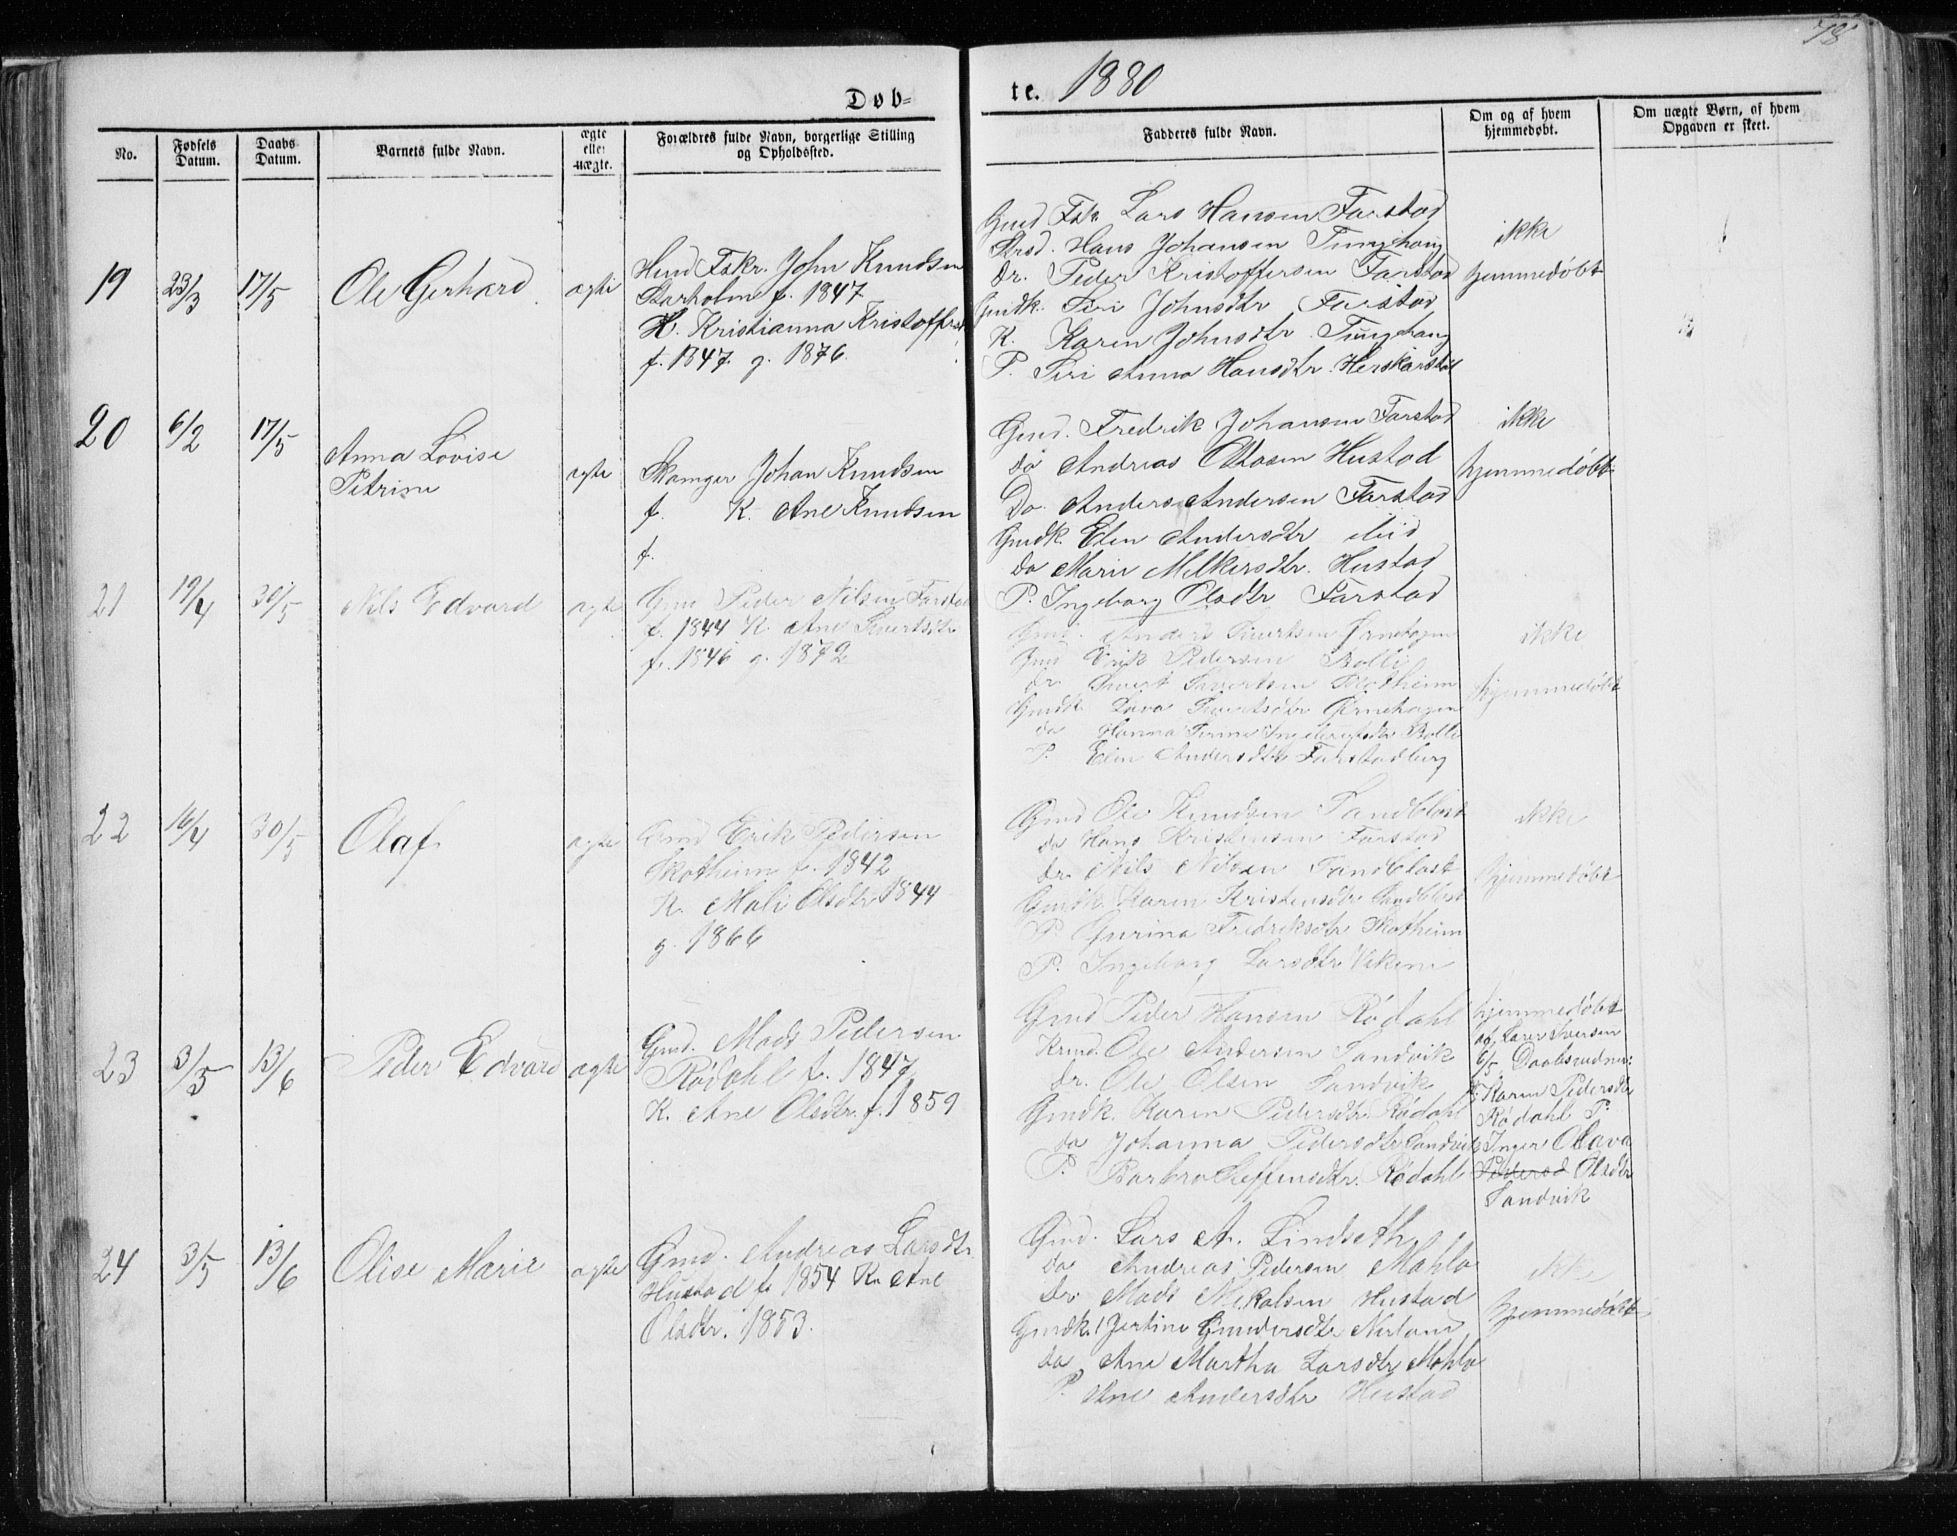 78
Døb=
te. 1880
No.
Fødsels Datum.
Daabs Datum.
Barnets fulde Navn.
ægte eller uægte.
Forældres fulde Navn, borgerlige Stilling
og Opholdssted.
Fadderes fulde Navn.
Om og af hvem
hjemmedøbt.
Om uægte Børn, af hvem
Opgaven er skeet.
19 23/3 17/5 Ole Gerhard ægte
Hmd Fskr. John Knudsen
Skarholm f. 1847
K. Kristianna Kristoffersd
f. 1847. g. 1876.
Gmd Fsk Lars Hansen Farstad
Strsd. Hans Johansen Tunghaug
dr. Peder Kristoffersen Farstad
Gmdk. Siri Johnsdtr Farstad
K. Karen Johnsdtr Tunghaug
P. Siri Anna Hansdtr.
ikke
hjemmedøbt
20 6/2 17/5 Anna Lovise
Petrine
ægte
Johan Knudsen
f. K. Ane Knudsen
f.
Gmd. Fredrik Johansen Farstad
do Andreas Ottosen Hustad
Do. Anders Andersen Farstad
Gmdk. Elen Andersdtr
do Marie Melkersdtr. Hustad
P. Ingeborg Olsdtr Farstad
ikke
hjemmedøbt
21 19/4 30/5 Nils Edvard ægte
Gmd Peder Nilsen Farstad
f. 1844 K. Ane Sivertsdtr
f. 1846 g. 1872
Gmd. Anders Sivertsen Ørnehagen
Gmd Erik Pedersen Bolli
dr Sivert Sivertsen Skotheim
Gmdk Sivertsdtr Ørnehagen
do Hanna Bolli
P. Elen Andersdtr Farstadberg
ikke
hjemmedøbt
22 16/4 30/5 Olaf ægte
Gmd Erik Pedersen
Skotheim f. 1842
K. Mali Olsdtr 1844
g. 1866
Gmd Ole Knudsen Sandblast
do Hans Kristensen Farstad
dr. Nils Nilsen Sandblast
Gmdk Karen Kristensdtr Sandblast
P. Gurina Fredriksdtr Skotheim
P. Ingeborg Larsdtr Vikene
ikke
hjemmedøbt
23 3/5 13/6 Peder Edvard ægte
Gmd. Mads Pedersen
Rødahl f. 1847
K. Ane Olsdtr. f. 1859
Gmd Peder Hansen Rødahl
Krmd. Ole Andersen Sandvik
Dr. Ole Olsen Sandvik
Gmdk. Karen Pedersdtr Rødahl
do Johanna Pedersdtr Sandvik
P. Barbro Steffensdtr. Rødahl
hjemmedøbt
af Lars Iversen
6/5. Daabsvidner:
K Karen Pedersdtr
Rødahl P.
Inger Olava
Olsdtr
Sandvik
24 3/5 13/6 Olise Marie ægte
Gmd. Andreas Larsdtr.
Hustad f. 1854 K. Ane
Olsdtr. 1853.
Gmd. Lars A. Lindseth
do Andreas Pedersen Mahlo
Dr. Mads Nekolsen Hustad
Gmdk. Jertine Gundersdtr
do Ane Martha Larsdtr Mahlo
P. Ane Andersdtr Hustad
ikke
hjemmedøbt